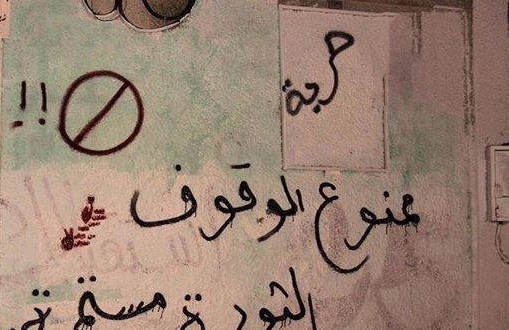 حرية
!!
ممنوع الوقوف
الثورة مستمرة